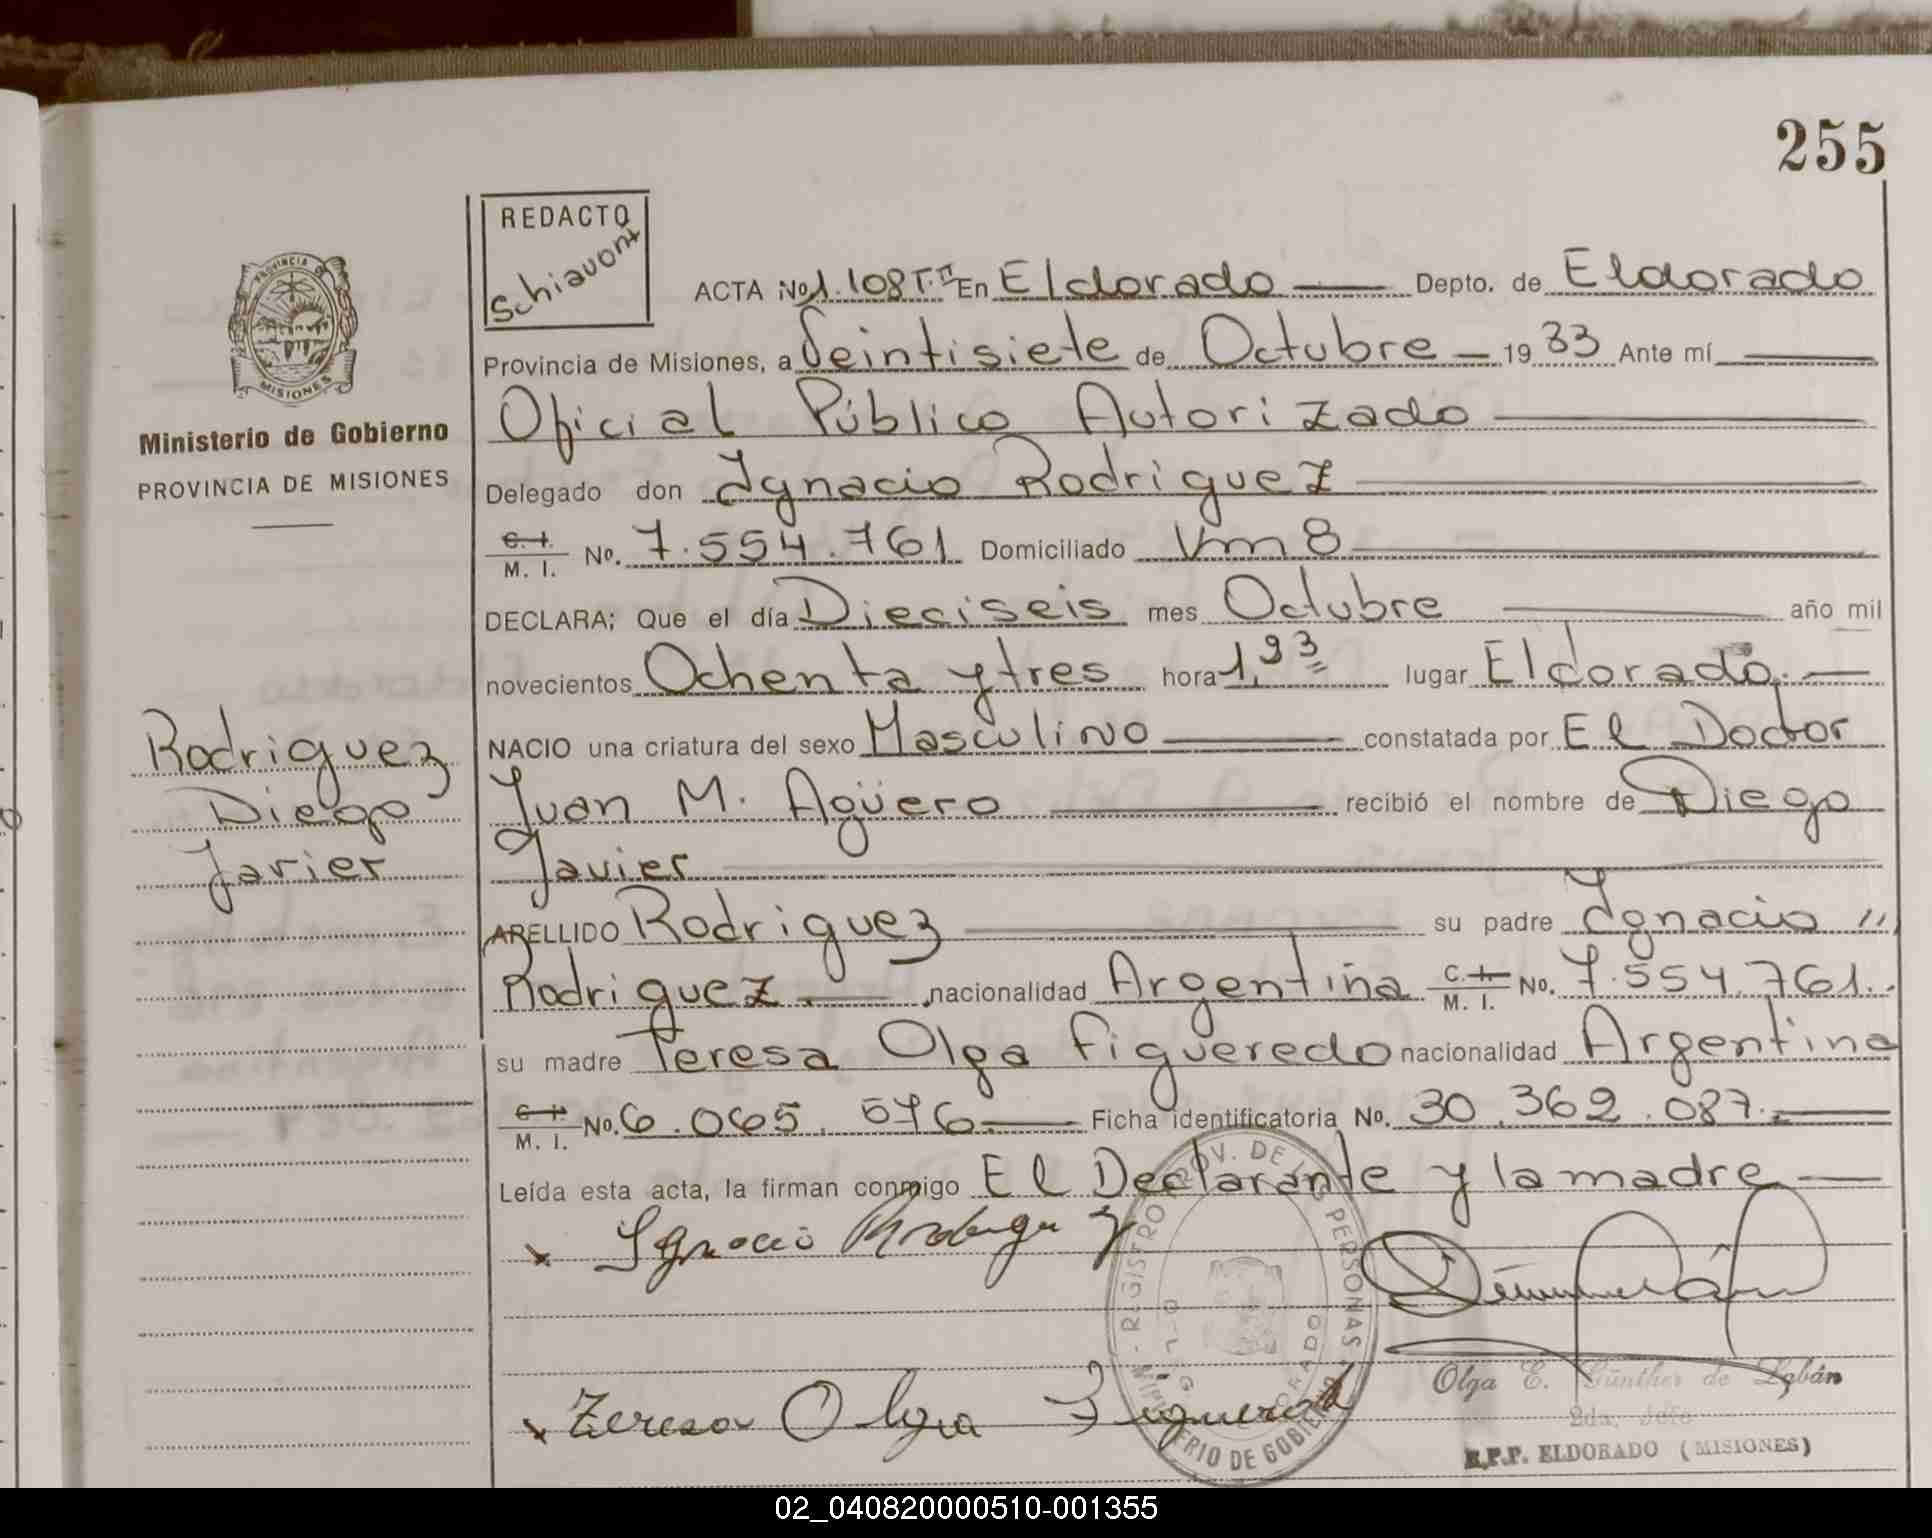 255
REDACTO
Schiavoni
PROVINCIA DE
MISIONES
Ministerio de Gobierno
PROVINCIA DE MISIONES
ACTA No 1.108 T.II En Eldorado Depto. de Eldorado
Provincia de Misiones, a Veintisiete de Octubre 1983 Ante mí
Oficial Público Autorizado
Delegado don Ignacio Rodriguez
C. I. / M. I. No. 7.554.761 Domiciliado Km 8
DECLARA; Que el día Dieciseis mes Octubre año mil
novecientos Ochenta y tres hora lugar Eldorado.
NACIO una criatura del sexo Masculino constatada por El Doctor
Juan M. Agüero recibió el nombre de Diego
Javier
APELLIDO Rodriguez su padre Ignacio
Rodriguez nacionalidad Argentina C. I. / M. I. No. 7.554.761
su madre Teresa Olga Figueredo nacionalidad Argentina
C. I. / M. I. No. 6.065.576 Ficha identificatoria No. 30.362.087
Leída esta acta, la firman conmigo El Declarante y la madre
Rodriguez
Diego
Javier
Ignacio Rodriguez
Teresa Olga Figueredo
REGISTRO PROV. DE LAS PERSONAS
MINISTERIO DE GOBIERNO
ELDORADO
Olga E. Günther de Labán
2da. Jefe
R.P.P. ELDORADO (MISIONES)
02_040820000510-001355